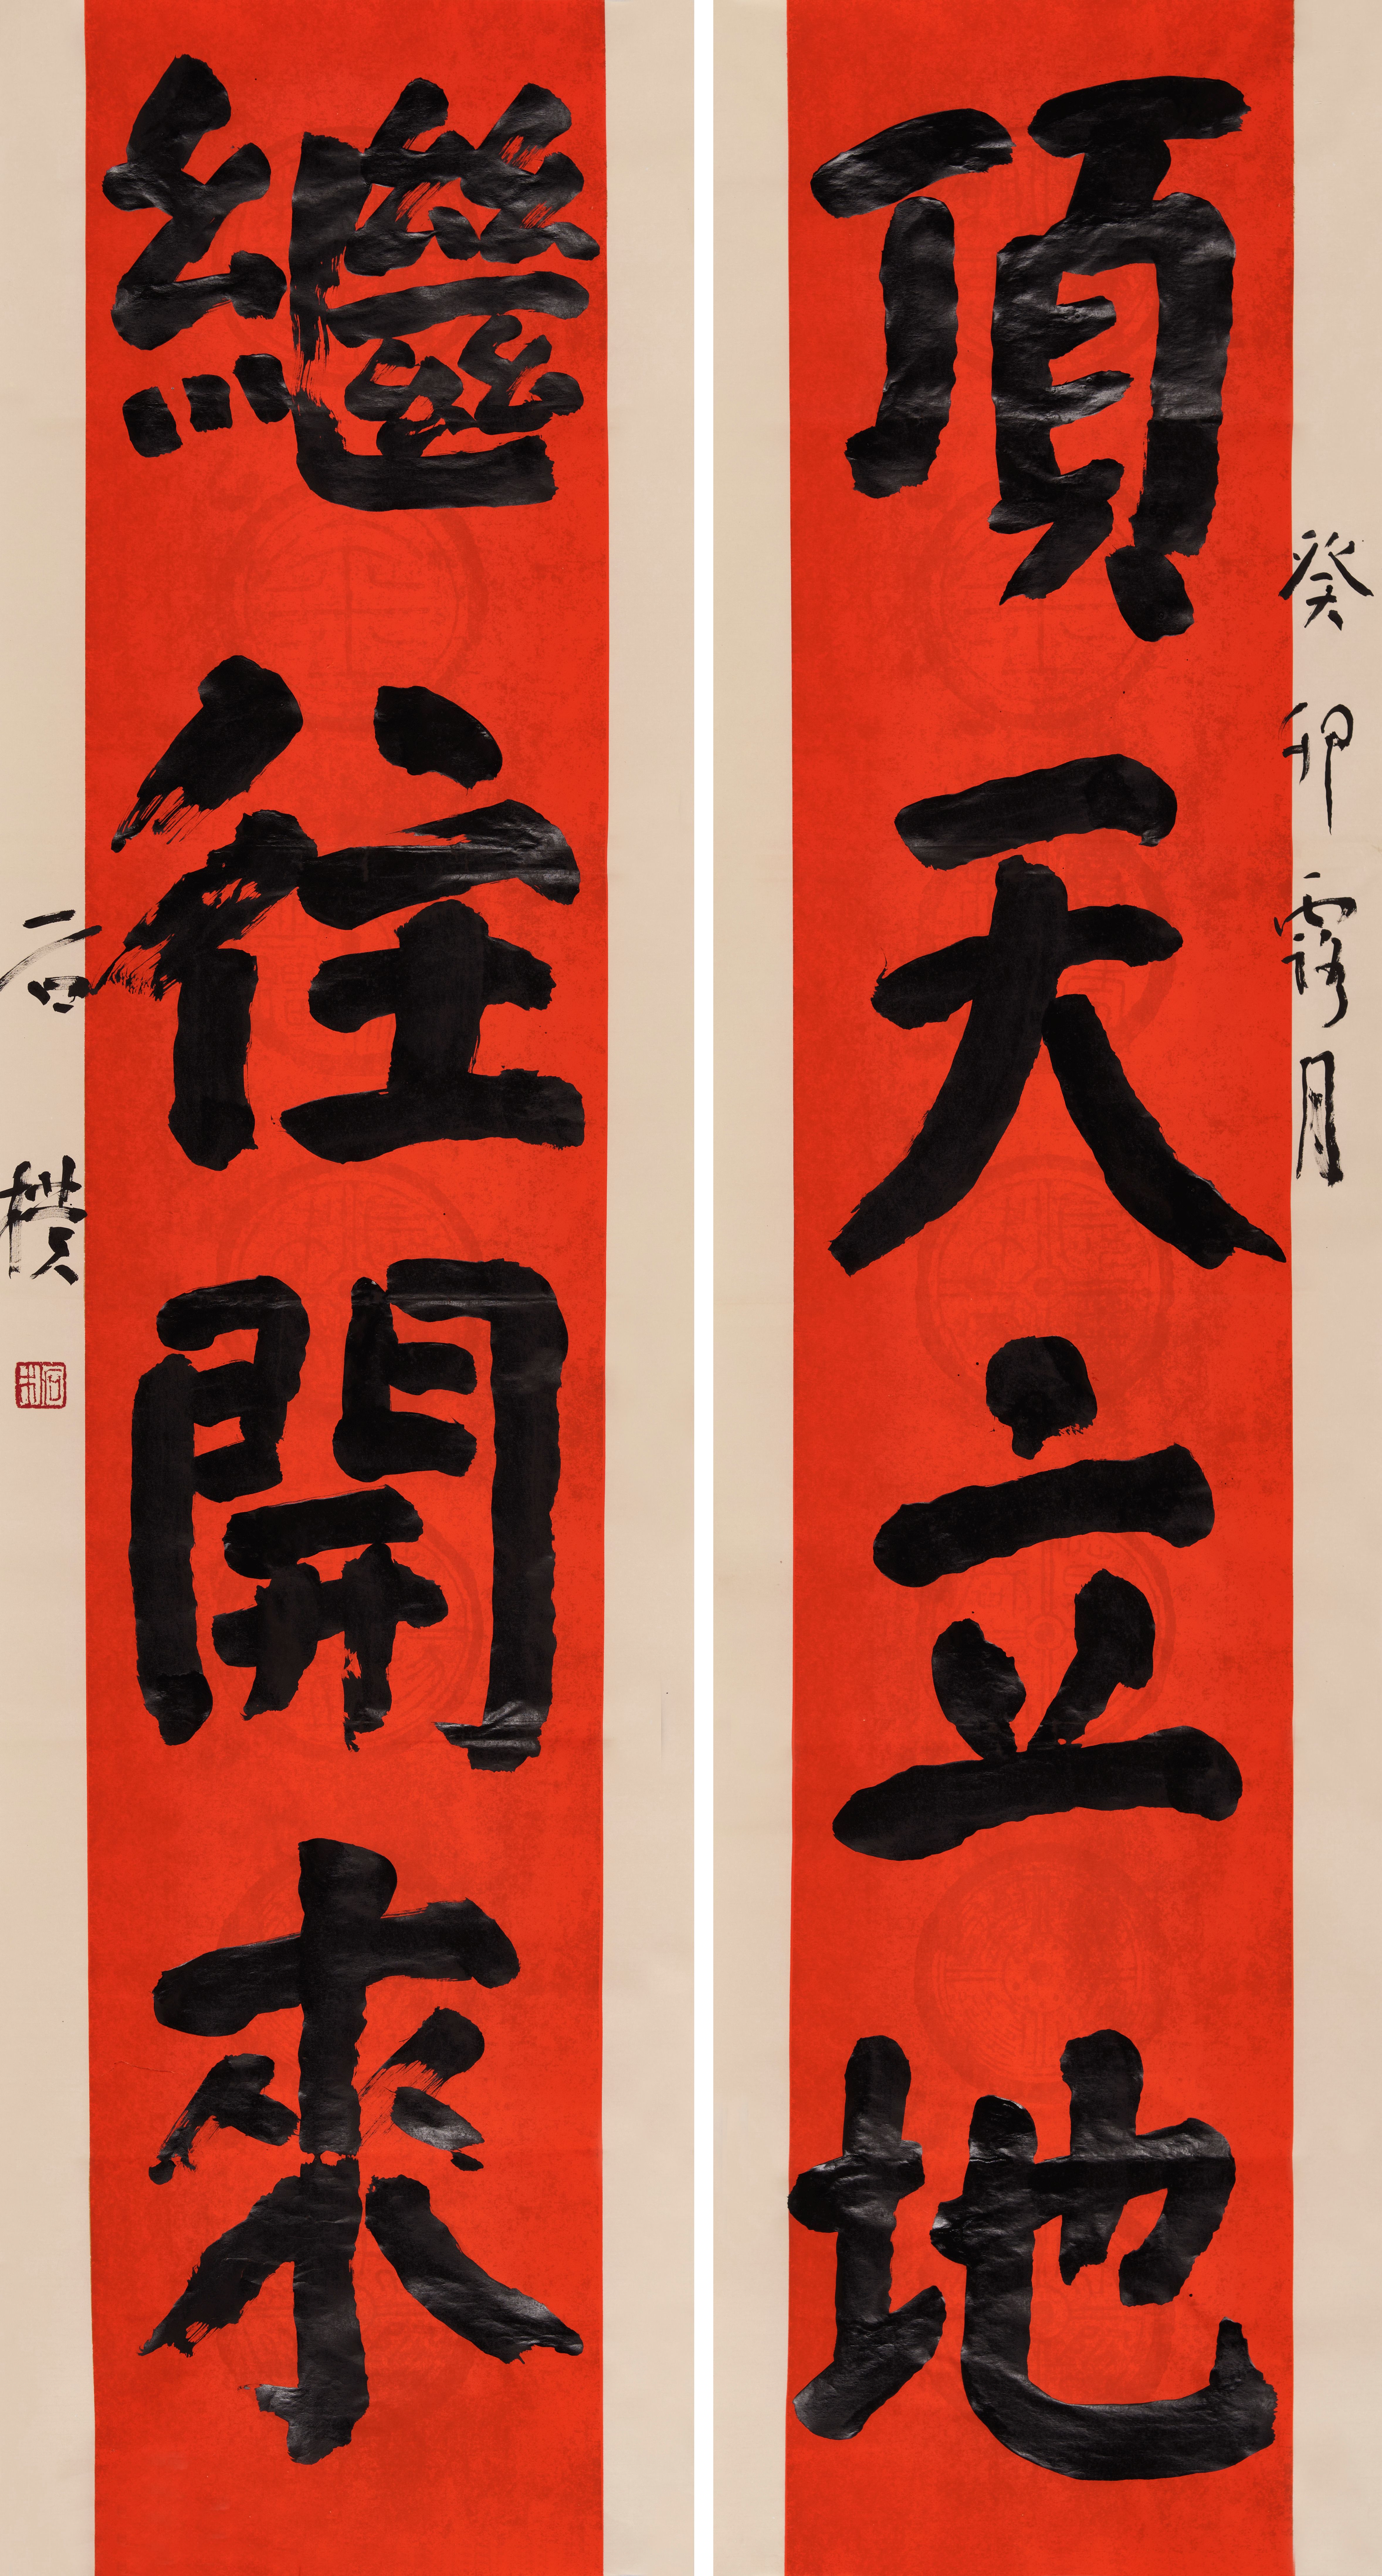 頂天立地
癸卯露月
繼往開來
石樸